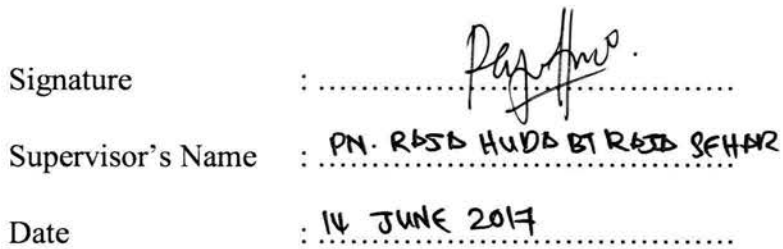 Signature :
Supervisor's Name : PN. RAJA HUDA BT RAJA SEHAR
Date : 14 JUNE 2017